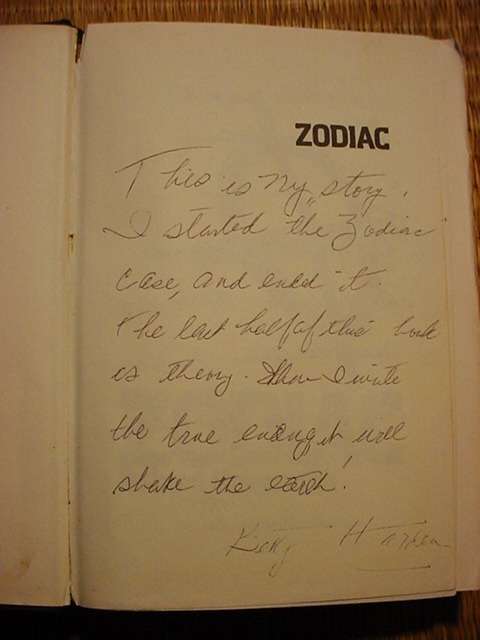 ZODIAC
This is My story.
I started the Zodiac
case, and ended it.
The last half of this book
is theory. When I write
the true ending it will
shake the earth!
Betty Harden